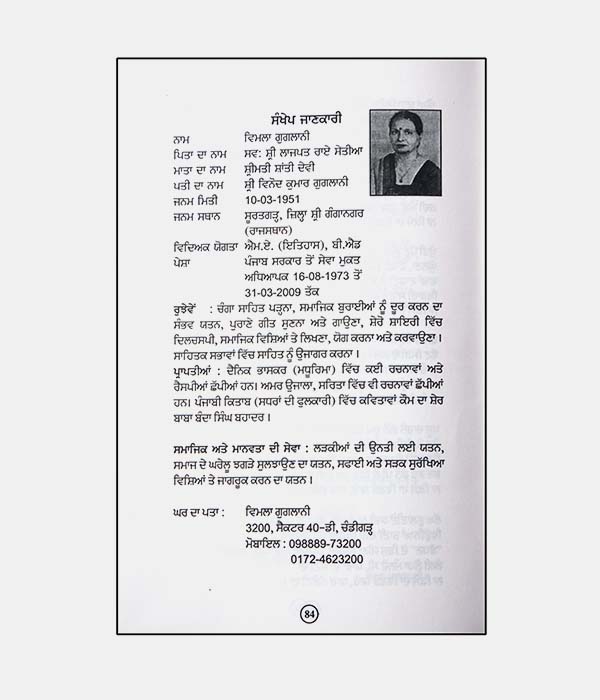 ਸੰਖੇਪ ਜਾਣਕਾਰੀ
ਨਾਮ ਵਿਮਲਾ ਗੁਗਲਾਨੀ
ਪਿਤਾ ਦਾ ਨਾਮ ਸਵ: ਸ਼੍ਰੀ ਲਾਜਪਤ ਰਾਏ ਸੇਤੀਆ
ਮਾਤਾ ਦਾ ਨਾਮ ਸ਼੍ਰੀਮਤੀ ਸ਼ਾਂਤੀ ਦੇਵੀ
ਪਤੀ ਦਾ ਨਾਮ ਸ਼੍ਰੀ ਵਿਨੋਦ ਕੁਮਾਰ ਗੁਗਲਾਨੀ
ਜਨਮ ਮਿਤੀ 10-03-1951
ਜਨਮ ਸਥਾਨ ਸੂਰਤਗੜ੍ਹ, ਜ਼ਿਲ੍ਹਾ ਸ਼੍ਰੀ ਗੰਗਾਨਗਰ
(ਰਾਜਸਥਾਨ)
ਵਿਦਿਅਕ ਯੋਗਤਾ ਐਮ.ਏ. (ਇਤਿਹਾਸ), ਬੀ.ਐਡ
ਪੇਸ਼ਾ ਪੰਜਾਬ ਸਰਕਾਰ ਤੋਂ ਸੇਵਾ ਮੁਕਤ
ਅਧਿਆਪਕ 16-08-1973 ਤੋਂ
31-03-2009 ਤੱਕ
ਰੁਝੇਵੇਂ : ਚੰਗਾ ਸਾਹਿਤ ਪੜ੍ਹਨਾ, ਸਮਾਜਿਕ ਬੁਰਾਈਆਂ ਨੂੰ ਦੂਰ ਕਰਨ ਦਾ
ਸੰਭਵ ਯਤਨ, ਪੁਰਾਣੇ ਗੀਤ ਸੁਣਨਾ ਅਤੇ ਗਾਉਣਾ, ਸ਼ੇਰੋ ਸ਼ਾਇਰੀ ਵਿੱਚ
ਦਿਲਚਸਪੀ, ਸਮਾਜਿਕ ਵਿਸ਼ਿਆਂ ਤੇ ਲਿਖਣਾ, ਯੋਗ ਕਰਨਾ ਅਤੇ ਕਰਵਾਉਣਾ।
ਸਾਹਿਤਕ ਸਭਾਵਾਂ ਵਿੱਚ ਸਾਹਿਤ ਨੂੰ ਉਜਾਗਰ ਕਰਨਾ।
ਪ੍ਰਾਪਤੀਆਂ : ਦੈਨਿਕ ਭਾਸਕਰ (ਮਧੂਰਿਮਾ) ਵਿੱਚ ਕਈ ਰਚਨਾਵਾਂ ਅਤੇ
ਰੈਸਪੀਆਂ ਛੱਪੀਆਂ ਹਨ। ਅਮਰ ਉਜਾਲਾ, ਸਰਿਤਾ ਵਿੱਚ ਵੀ ਰਚਨਾਵਾਂ ਛੱਪੀਆਂ
ਹਨ। ਪੰਜਾਬੀ ਕਿਤਾਬ (ਸਧਰਾਂ ਦੀ ਫੁਲਕਾਰੀ) ਵਿੱਚ ਕਵਿਤਾਵਾਂ ਕੌਮ ਦਾ ਸ਼ੇਰ
ਬਾਬਾ ਬੰਦਾ ਸਿੰਘ ਬਹਾਦਰ।
ਸਮਾਜਿਕ ਅਤੇ ਮਾਨਵਤਾ ਦੀ ਸੇਵਾ : ਲੜਕੀਆਂ ਦੀ ਉਨਤੀ ਲਈ ਯਤਨ,
ਸਮਾਜ ਦੇ ਘਰੇਲੂ ਝਗੜੇ ਸੁਲਝਾਉਣ ਦਾ ਯਤਨ, ਸਫਾਈ ਅਤੇ ਸੜਕ ਸੁਰੱਖਿਆ
ਵਿਸ਼ਿਆਂ ਤੇ ਜਾਗਰੂਕ ਕਰਨ ਦਾ ਯਤਨ।
ਘਰ ਦਾ ਪਤਾ : ਵਿਮਲਾ ਗੁਗਲਾਨੀ
3200, ਸੈਕਟਰ 40-ਡੀ, ਚੰਡੀਗੜ੍ਹ
ਮੋਬਾਇਲ : 098889-73200
0172-4623200
84